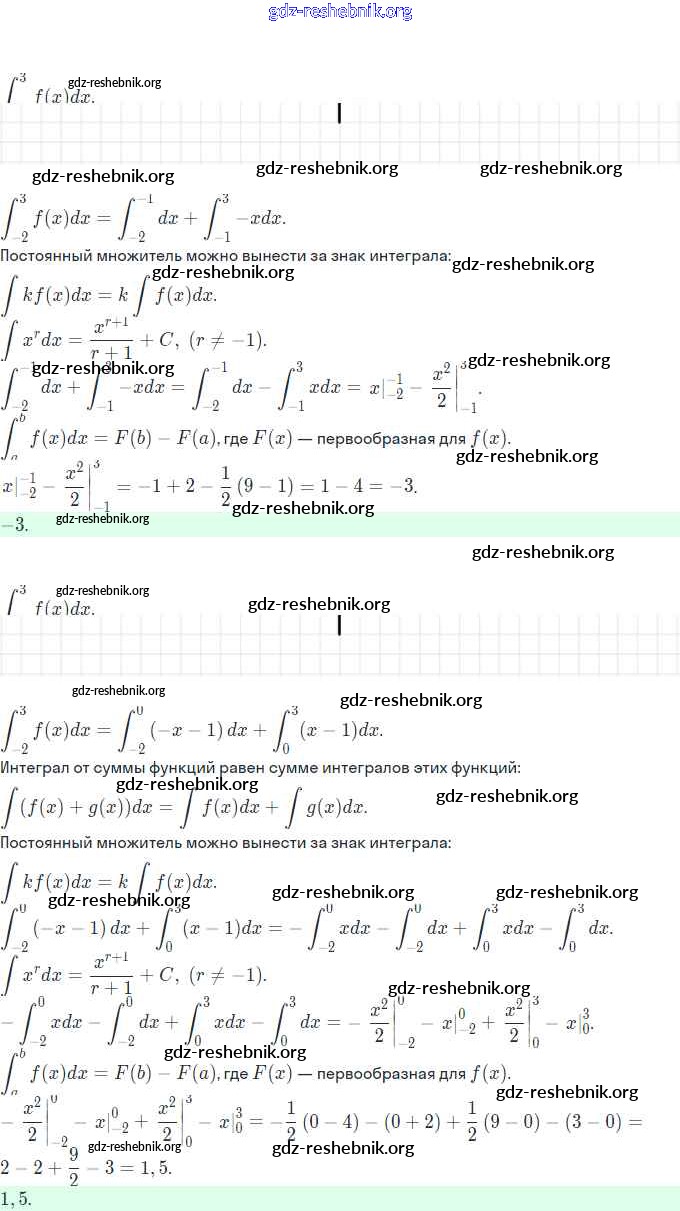 gdz-reshebnik.org
gdz-reshebnik.org
∫³ f(x)dx.
gdz-reshebnik.org gdz-reshebnik.org gdz-reshebnik.org
∫₋₂³ f(x)dx = ∫₋₂⁻¹ dx + ∫₋₁³ −xdx.
Постоянный множитель можно вынести за знак интеграла: gdz-reshebnik.org
gdz-reshebnik.org
∫ kf(x)dx = k ∫ f(x)dx.
∫ xʳdx = xʳ⁺¹/(r + 1) + C, (r ≠ −1).
gdz-reshebnik.org gdz-reshebnik.org
∫₋₂⁻¹ dx + ∫₋₁³ −xdx = ∫₋₂⁻¹ dx − ∫₋₁³ xdx = x|₋₂⁻¹ − x²/2|₋₁³.
∫ₐᵇ f(x)dx = F(b) − F(a), где F(x) — первообразная для f(x).
gdz-reshebnik.org
x|₋₂⁻¹ − x²/2|₋₁³ = −1 + 2 − 1/2 (9 − 1) = 1 − 4 = −3.
gdz-reshebnik.org
−3. gdz-reshebnik.org
gdz-reshebnik.org
gdz-reshebnik.org gdz-reshebnik.org
∫³ f(x)dx.
gdz-reshebnik.org gdz-reshebnik.org
∫₋₂³ f(x)dx = ∫₋₂⁰ (−x − 1) dx + ∫₀³ (x − 1)dx.
Интеграл от суммы функций равен сумме интегралов этих функций:
gdz-reshebnik.org gdz-reshebnik.org
∫ (f(x) + g(x))dx = ∫ f(x)dx + ∫ g(x)dx.
Постоянный множитель можно вынести за знак интеграла:
∫ kf(x)dx = k ∫ f(x)dx.
gdz-reshebnik.org gdz-reshebnik.org gdz-reshebnik.org
∫₋₂⁰ (−x − 1) dx + ∫₀³ (x − 1)dx = − ∫₋₂⁰ xdx − ∫₋₂⁰ dx + ∫₀³ xdx − ∫₀³ dx.
∫ xʳdx = xʳ⁺¹/(r + 1) + C, (r ≠ −1).
gdz-reshebnik.org
− ∫₋₂⁰ xdx − ∫₋₂⁰ dx + ∫₀³ xdx − ∫₀³ dx = − x²/2|₋₂⁰ − x|₋₂⁰ + x²/2|₀³ − x|₀³.
gdz-reshebnik.org
∫ₐᵇ f(x)dx = F(b) − F(a), где F(x) — первообразная для f(x).
gdz-reshebnik.org
− x²/2|₋₂⁰ − x|₋₂⁰ + x²/2|₀³ − x|₀³ = −1/2 (0 − 4) − (0 + 2) + 1/2 (9 − 0) − (3 − 0) =
gdz-reshebnik.org gdz-reshebnik.org
2 − 2 + 9/2 − 3 = 1, 5.
1, 5.